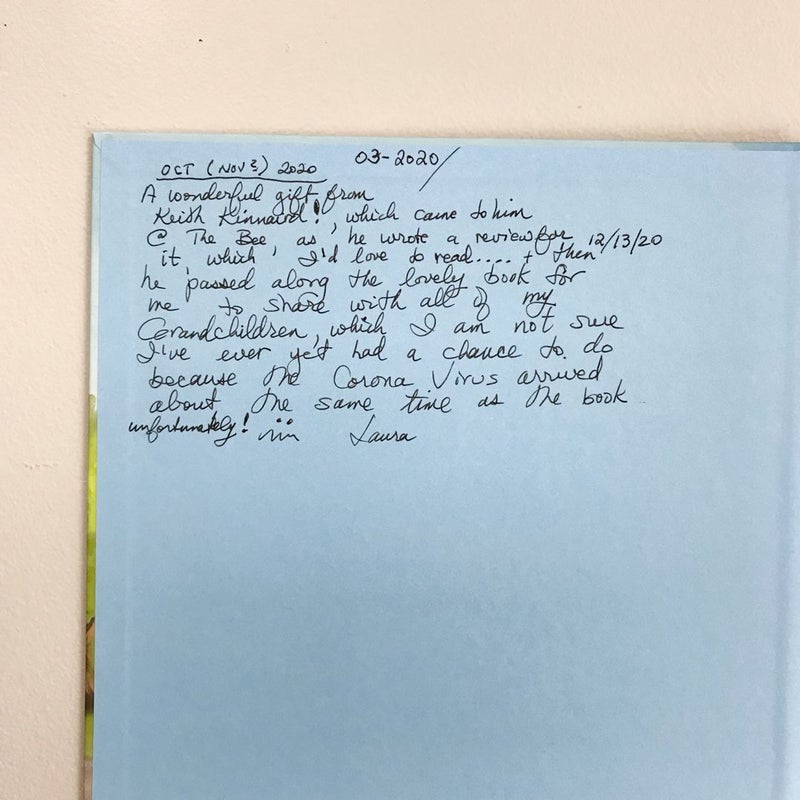 OCT (NOV 3) 2020 03-2020/
A wonderful gift from
Keith Kinnaird!, which came to him
@ The Bee, as he wrote a review for 12/13/20
it, which, I'd love to read.... + then
he passed along the lovely book for
me to share with all of my
Grandchildren, which I am not sure
I've ever yet had a chance to do
because the Corona Virus arrived
about the same time as the book
unfortunately! Laura